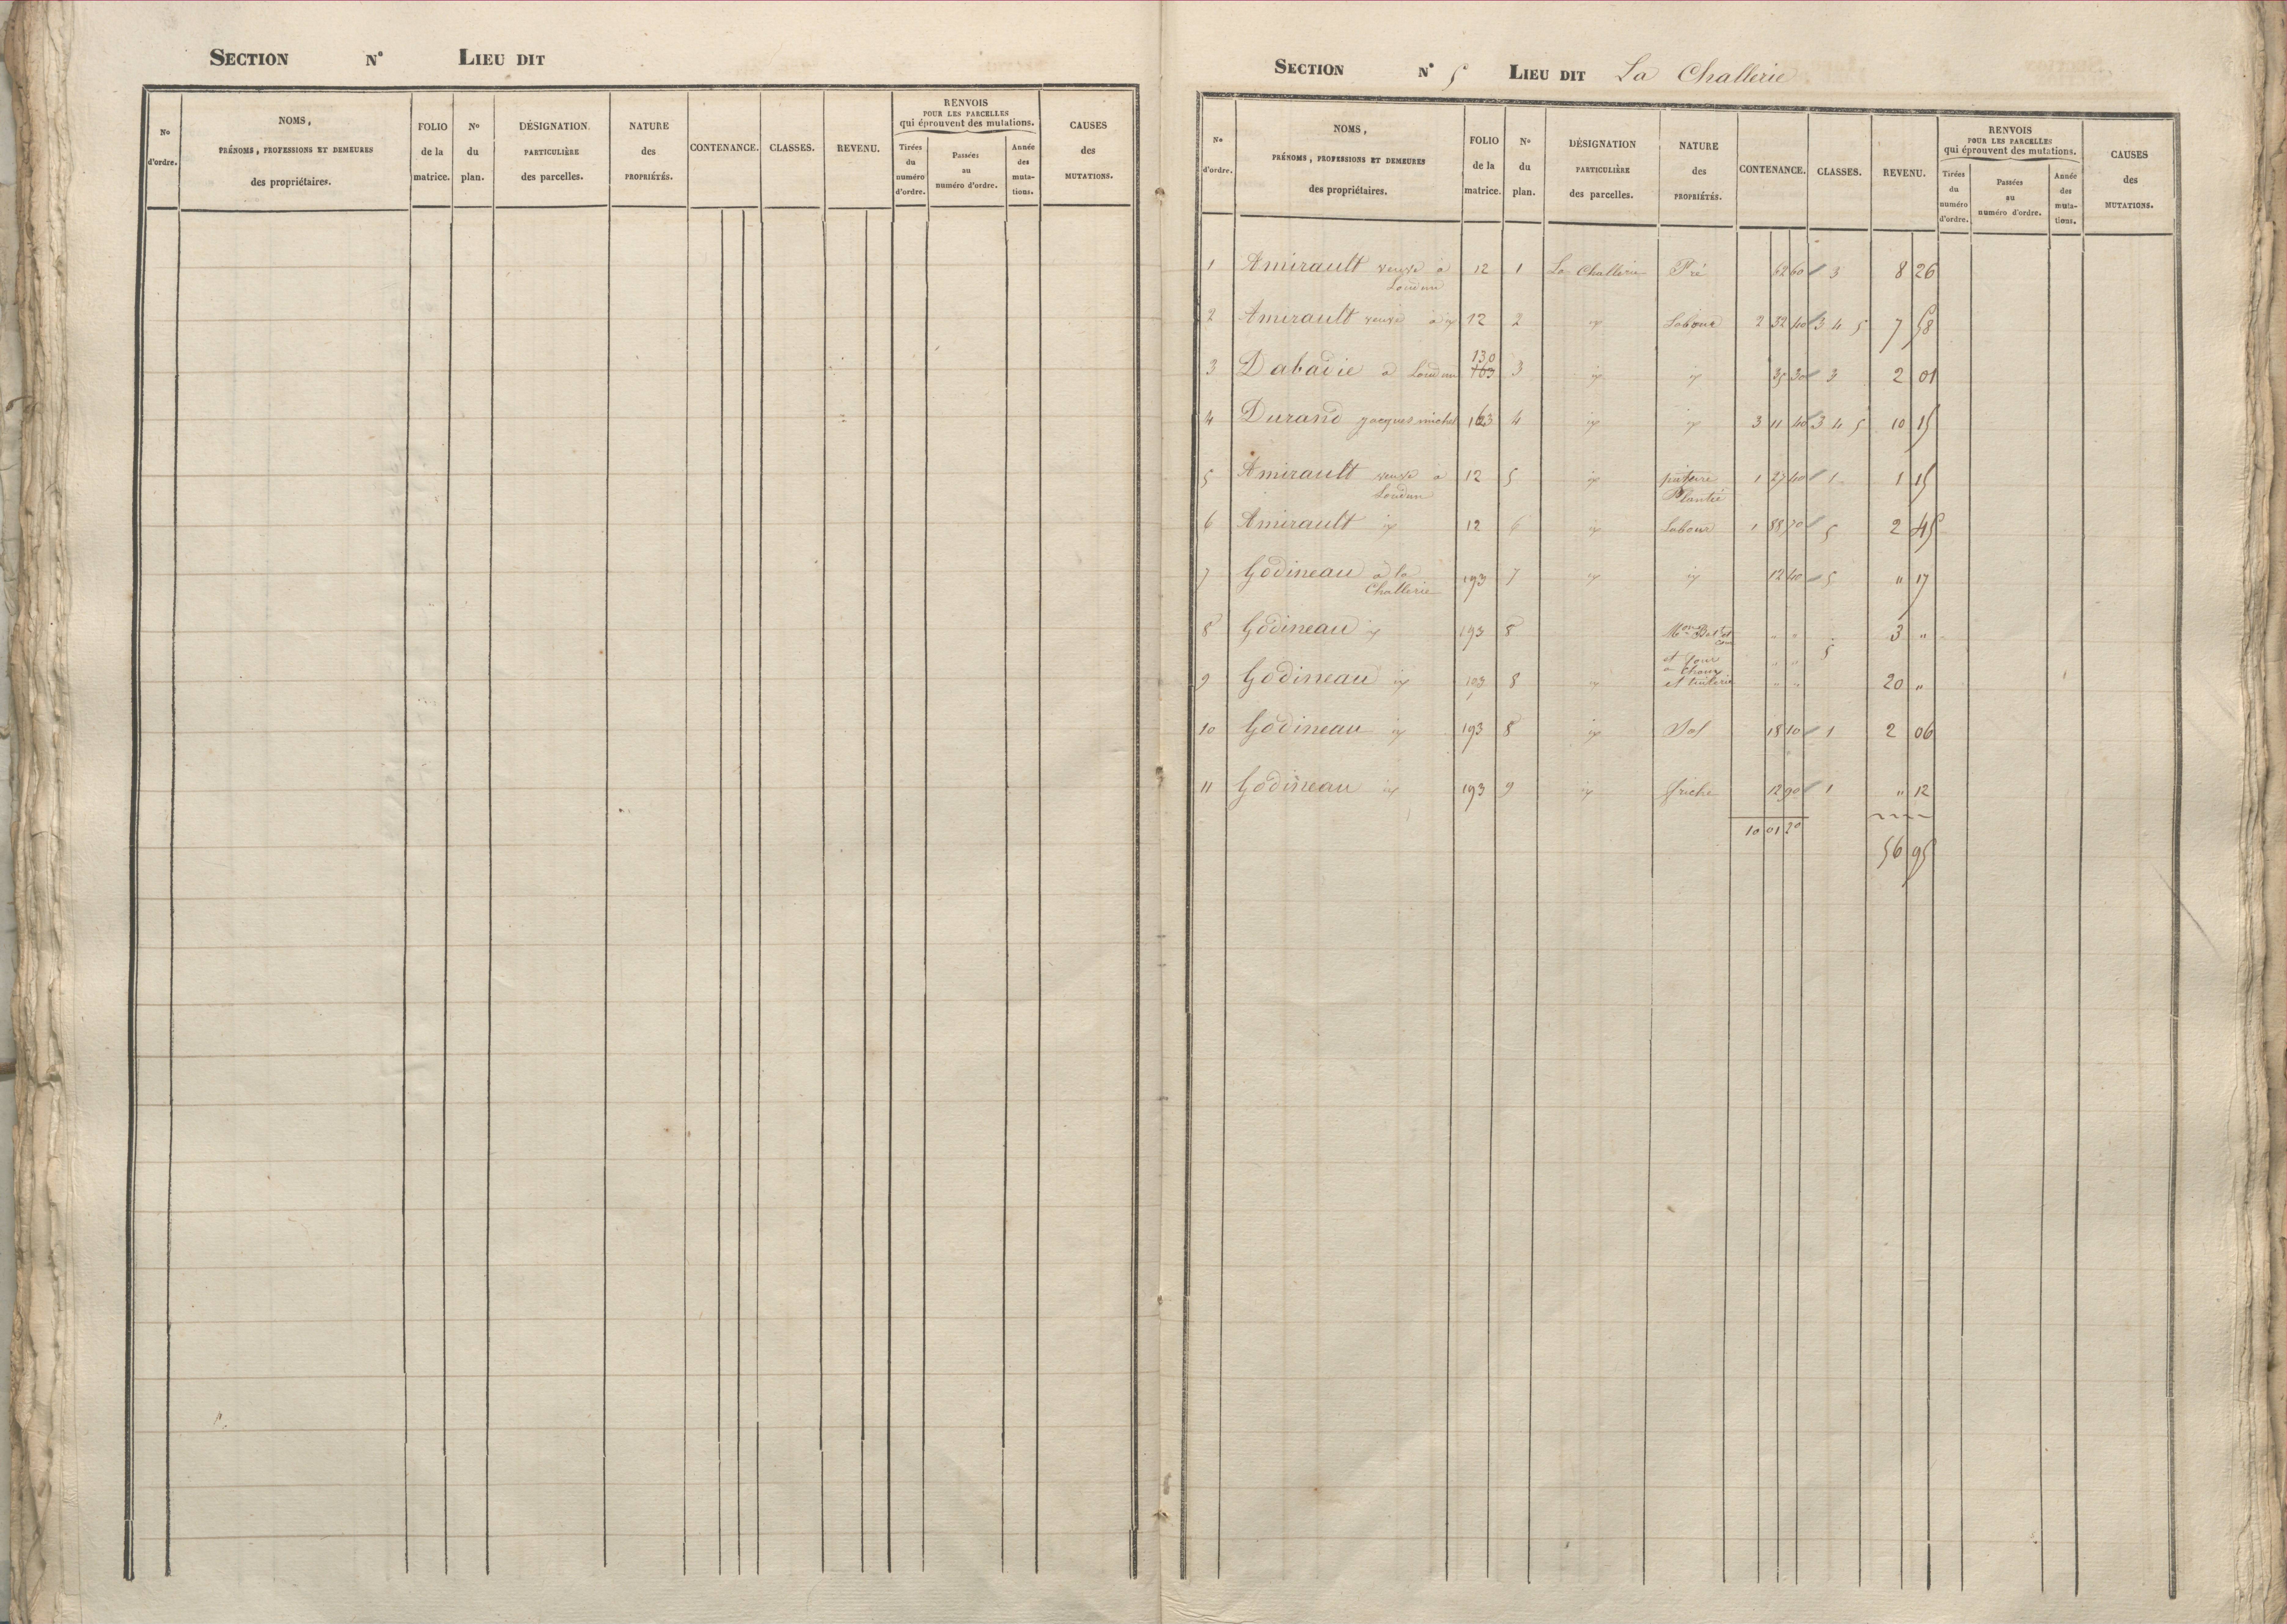 SECTION N° LIEU DIT
No d'ordre. NOMS, PRÉNOMS, PROFESSIONS ET DEMEURES des propriétaires. FOLIO de la matrice. No du plan. DÉSIGNATION PARTICULIÈRE des parcelles. NATURE des PROPRIÉTÉS. CONTENANCE. CLASSES. REVENU. RENVOIS POUR LES PARCELLES qui éprouvent des mutations. Tirées du numéro d'ordre. Passées au numéro d'ordre. Année des muta-tions. CAUSES des MUTATIONS.
SECTION N° 5 LIEU DIT La Challerie
No d'ordre. NOMS, PRÉNOMS, PROFESSIONS ET DEMEURES des propriétaires. FOLIO de la matrice. No du plan. DÉSIGNATION PARTICULIÈRE des parcelles. NATURE des PROPRIÉTÉS. CONTENANCE. CLASSES. REVENU. RENVOIS POUR LES PARCELLES qui éprouvent des mutations. Tirées du numéro d'ordre. Passées au numéro d'ordre. Année des muta-tions. CAUSES des MUTATIONS.
1 Amirault veuve à Loudun 12 1 La Challerie Pré 62 60 3 8 26
2 Amirault veuve à id 12 2 id Labour 2 32 40 3 4 5 7 58
3 Dabadie à Loudun 130 103 3 id id 35 30 3 2 01
4 Durand Jacques michel 163 4 id id 3 11 40 3 4 5 10 15
5 Amirault veuve à Loudun 12 5 id pature Plantée 1 27 40 1 1 15
6 Amirault id 12 6 id Labour 1 88 70 5 2 45
7 Godineau à la Challerie 193 7 id id 12 40 5 " 17
8 Godineau id 193 8 Mon Bat et " " 3 "
9 Godineau id 193 8 id et four à Chaux et tuilerie " " 20 "
10 Godineau id 193 8 id Sol 18 10 1 2 06
11 Godineau id 193 9 id friche 12 90 1 " 12
10 01 20
56 95